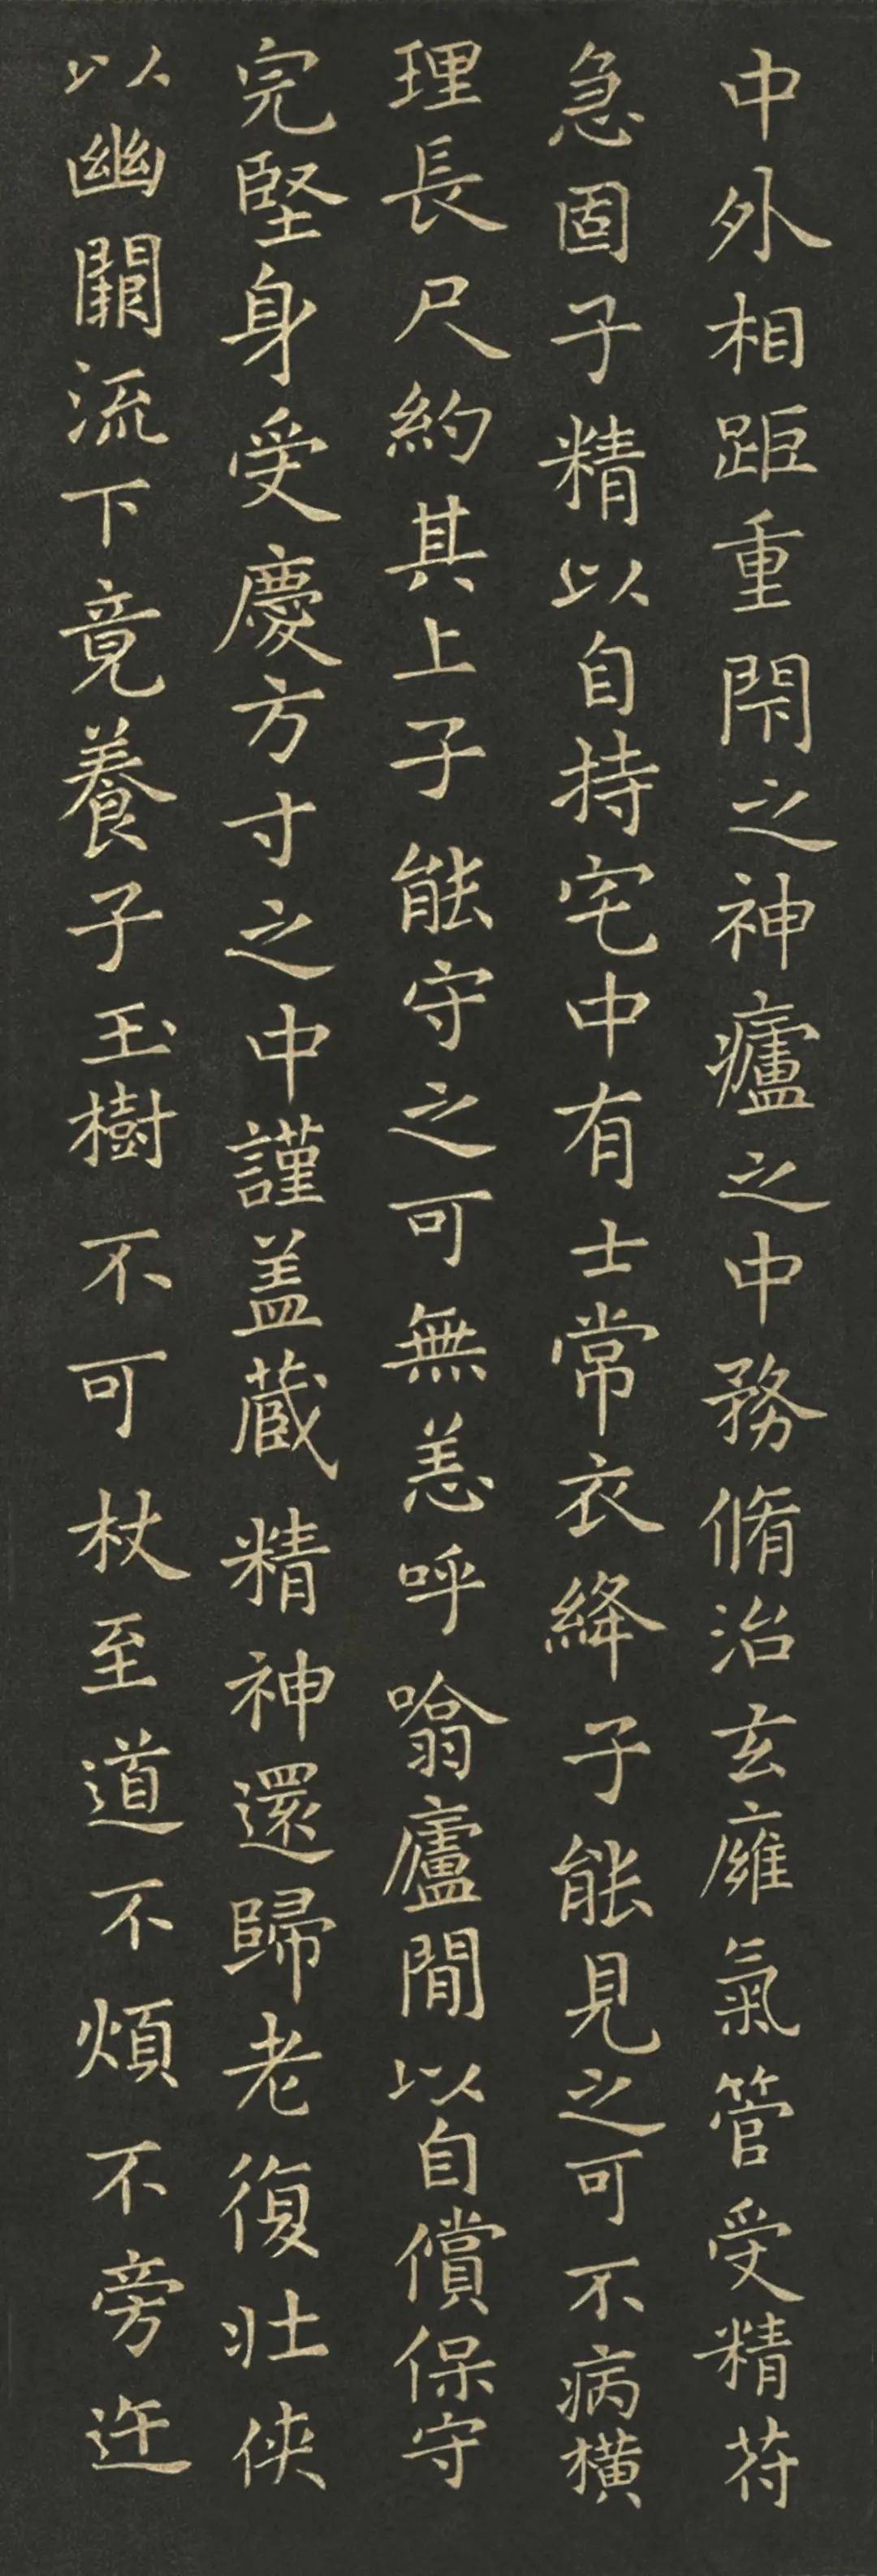 中外相距重閇之神癰之中務脩治玄癰氣管受精苻
急固子精以自持宅中有士常衣絳子能見之可不病橫
理長尺約其上子能守之可無恙呼噏廬間以自償保守
完堅身受慶方寸之中謹盖蔵精神還歸老復壯俠
以幽闕流下竟養子玉樹不可杖至道不煩不旁迕